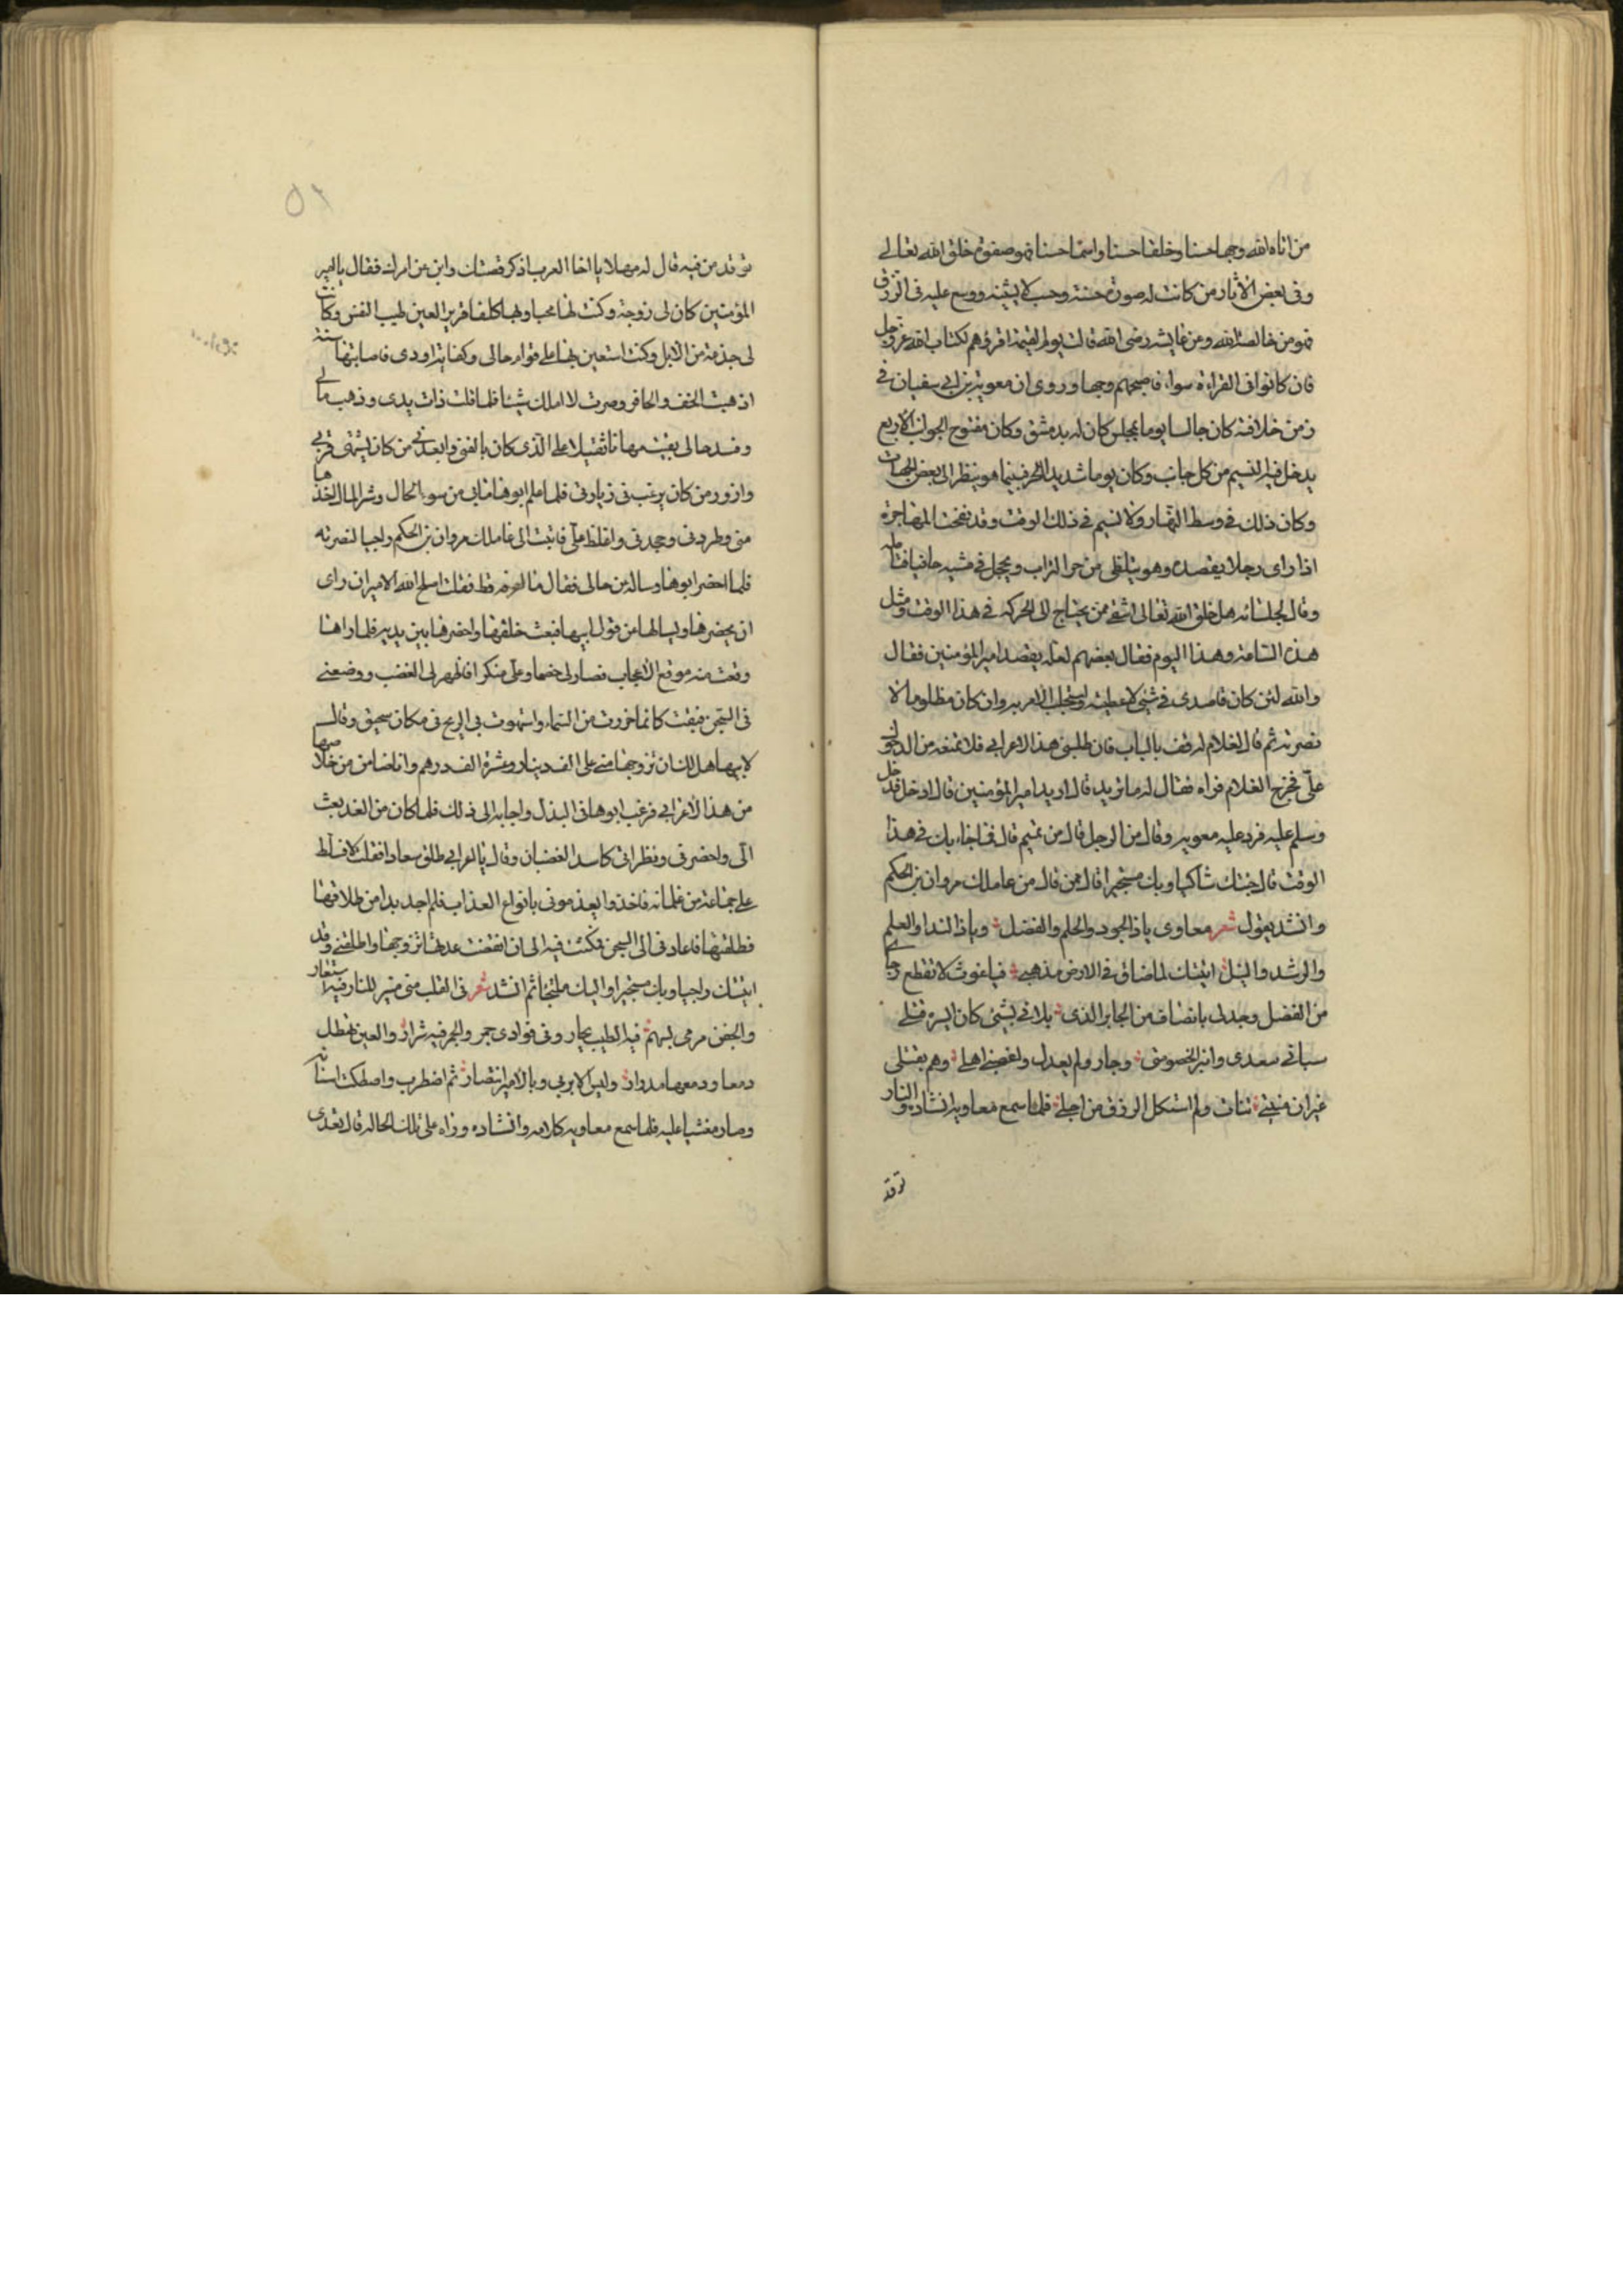 من اتاه الله وجها حسنا وخلقا حسنا واسما حسنا فهو صفوة خلق الله تعالى
وفى بعض الآثار من كانت له صورة حسنة وحسب لا يشينه ووسع عليه فى الرزق
فهو من خالصة الله ومن عايشه رضى الله قالت يؤم القيمة اقرؤهم لكتاب الله عز وجل
فان كانوا فى القراءة سواء فاصبحهم وجها وروى ان معوية بن ابى سفيان فى
زمن خلافته كان جالسا يوما بمجلس كان له بدمشق وكان مفتوح الجوانب الاربع
يدخل فيه النسيم من كل جانب وكان يوما شديد الحر فبينما هو ينظر الى بعض الجهات
وكان ذلك فى وسط النهار ولا نسيم فى ذلك الوقت وقد نفحت الهاجرة
اذا راى رجلا يقصده وهو يتلظى من حر التراب ويحجل فى مشيه حافيا فتامله
وقال لجلسائه هل خلق الله تعالى اشقى ممن يحتاج الى الحركة فى هذا الوقت ومثل
هذه الساعة وهذا اليوم فقال بعضهم لعله يقصد امير المؤمنين فقال
والله لئن كان قاصدى فى شئ لاعطينه واستجلب الامر به وان كان مظلوما لا
نصرنه ثم قال لغلام له قف بالباب فان طلبنى هذا الاعرابى فلا تمنعه من الدخول
علىّ فخرج الغلام فراه فقال له ما تريد قال اريد امير المؤمنين قال ادخل فدخل
وسلم عليه فرد عليه معوية وقال من الرجل قال من تميم قال فما جاء بك فى هذا
الوقت قال جئتك شاكيا وبك مستجيرا قال ممن قال من عاملك مروان بن الحكم
وانشد يقول شعر معاوى ياذا الجود والحلم والفضل وياذا الندا والعلم
والرشد والنيل اتيتك لما ضاق فى الارض مذهبى فياغوث لا تقطع رجائى
من الفضل وجد لى بانصاف من الجاير الذى بلانى بشئ كان ايسره قتلى
سبانى سعدى وانبرا لخصومتى وجار ولم يعدل وغصبنى اهلى وهم بقتلى
غير ان منيتى تنات ولم استكمل الرزق من اجلى فلما سمع معاوية انشاده والنار
توقد
توقد من فيه قال له مهلا يا اخا العرب اذكر قصتك وابن عن امرك فقال يا امير
المؤمنين كان لى زوجة وكنت لها محبا وبها كلفا قرير العين طيب النفس وكانت
لى جذمة من الابل وكنت استعين بها على قوام حالى وكفاية اودى فاصابتنا سنة
اذهبت الخف والحافر وصرت لا املك شيئا فلما قلت ذات يدى وذهب مالى
وفسد حالى بقيت مهانا ثقيلا على الذى كان يالفنى وابعدنى من كان يشتهى قربى
وازور من كان يرغب فى زيارتى فلما علم ابوها ما بى من سوء الحال وشر المال اخذها
منى وطردنى وجحدنى واغلظ علىّ فاتيت الى عاملك مروان بن الحكم راجيا لنصرته
فلما احضر ابوها وساله عن حالى فقال ما اعرفه قط فقلت اصلح الله الامير ان راى
ان يحضرها ويسالها عن قول ابيها فبعث خلفها واحضرها بين يديه فلما راها
وقعت منه موقع الاعجاب فصار لى خصما وعلى منكرا فاظهر لى الغضب ووضعنى
فى السجن فبقيت كانما خررت من السماء واستهوت بى الريح فى مكان سحيق وقال
لابيها هل لك ان تزوجها منى على الف دينار وعشرة الف درهم وانا ضامن من خلاصها
من هذا الاعرابى فرغب ابوها فى البذل واجابه الى ذلك فلما كان من الغد بعث
الىّ واحضرنى ونظر الى كاسد الغضبان وقال يا اعرابى طلق سعاد فقلت لا فسلط
على جماعة من غلمانه فاخذوا يعذبونى بانواع العذاب فلم اجد بدا من طلاقها
فطلقتها فاعادنى الى السجن فمكثت فيه الى ان انقضت عدتها تزوجها واطلقنى وقد
اتيتك راجيا وبك مستجيرا واليك ملتجئا ثم انشد شعر فى القلب منى نار للنار فيه استعار
والجفن مرمى بسهم فيه الطبيب يحار وفى فوادى جمر والجمر فيه شرار والعين تهطل
دمعا ودمعها مدرار وليس الا بربى وبالامير انتصار ثم اضطرب واصطكت اسنانه
وصار مغشيا عليه فلما سمع معاوية كلامه وانشاده وراه على تلك الحاله قال تعدى